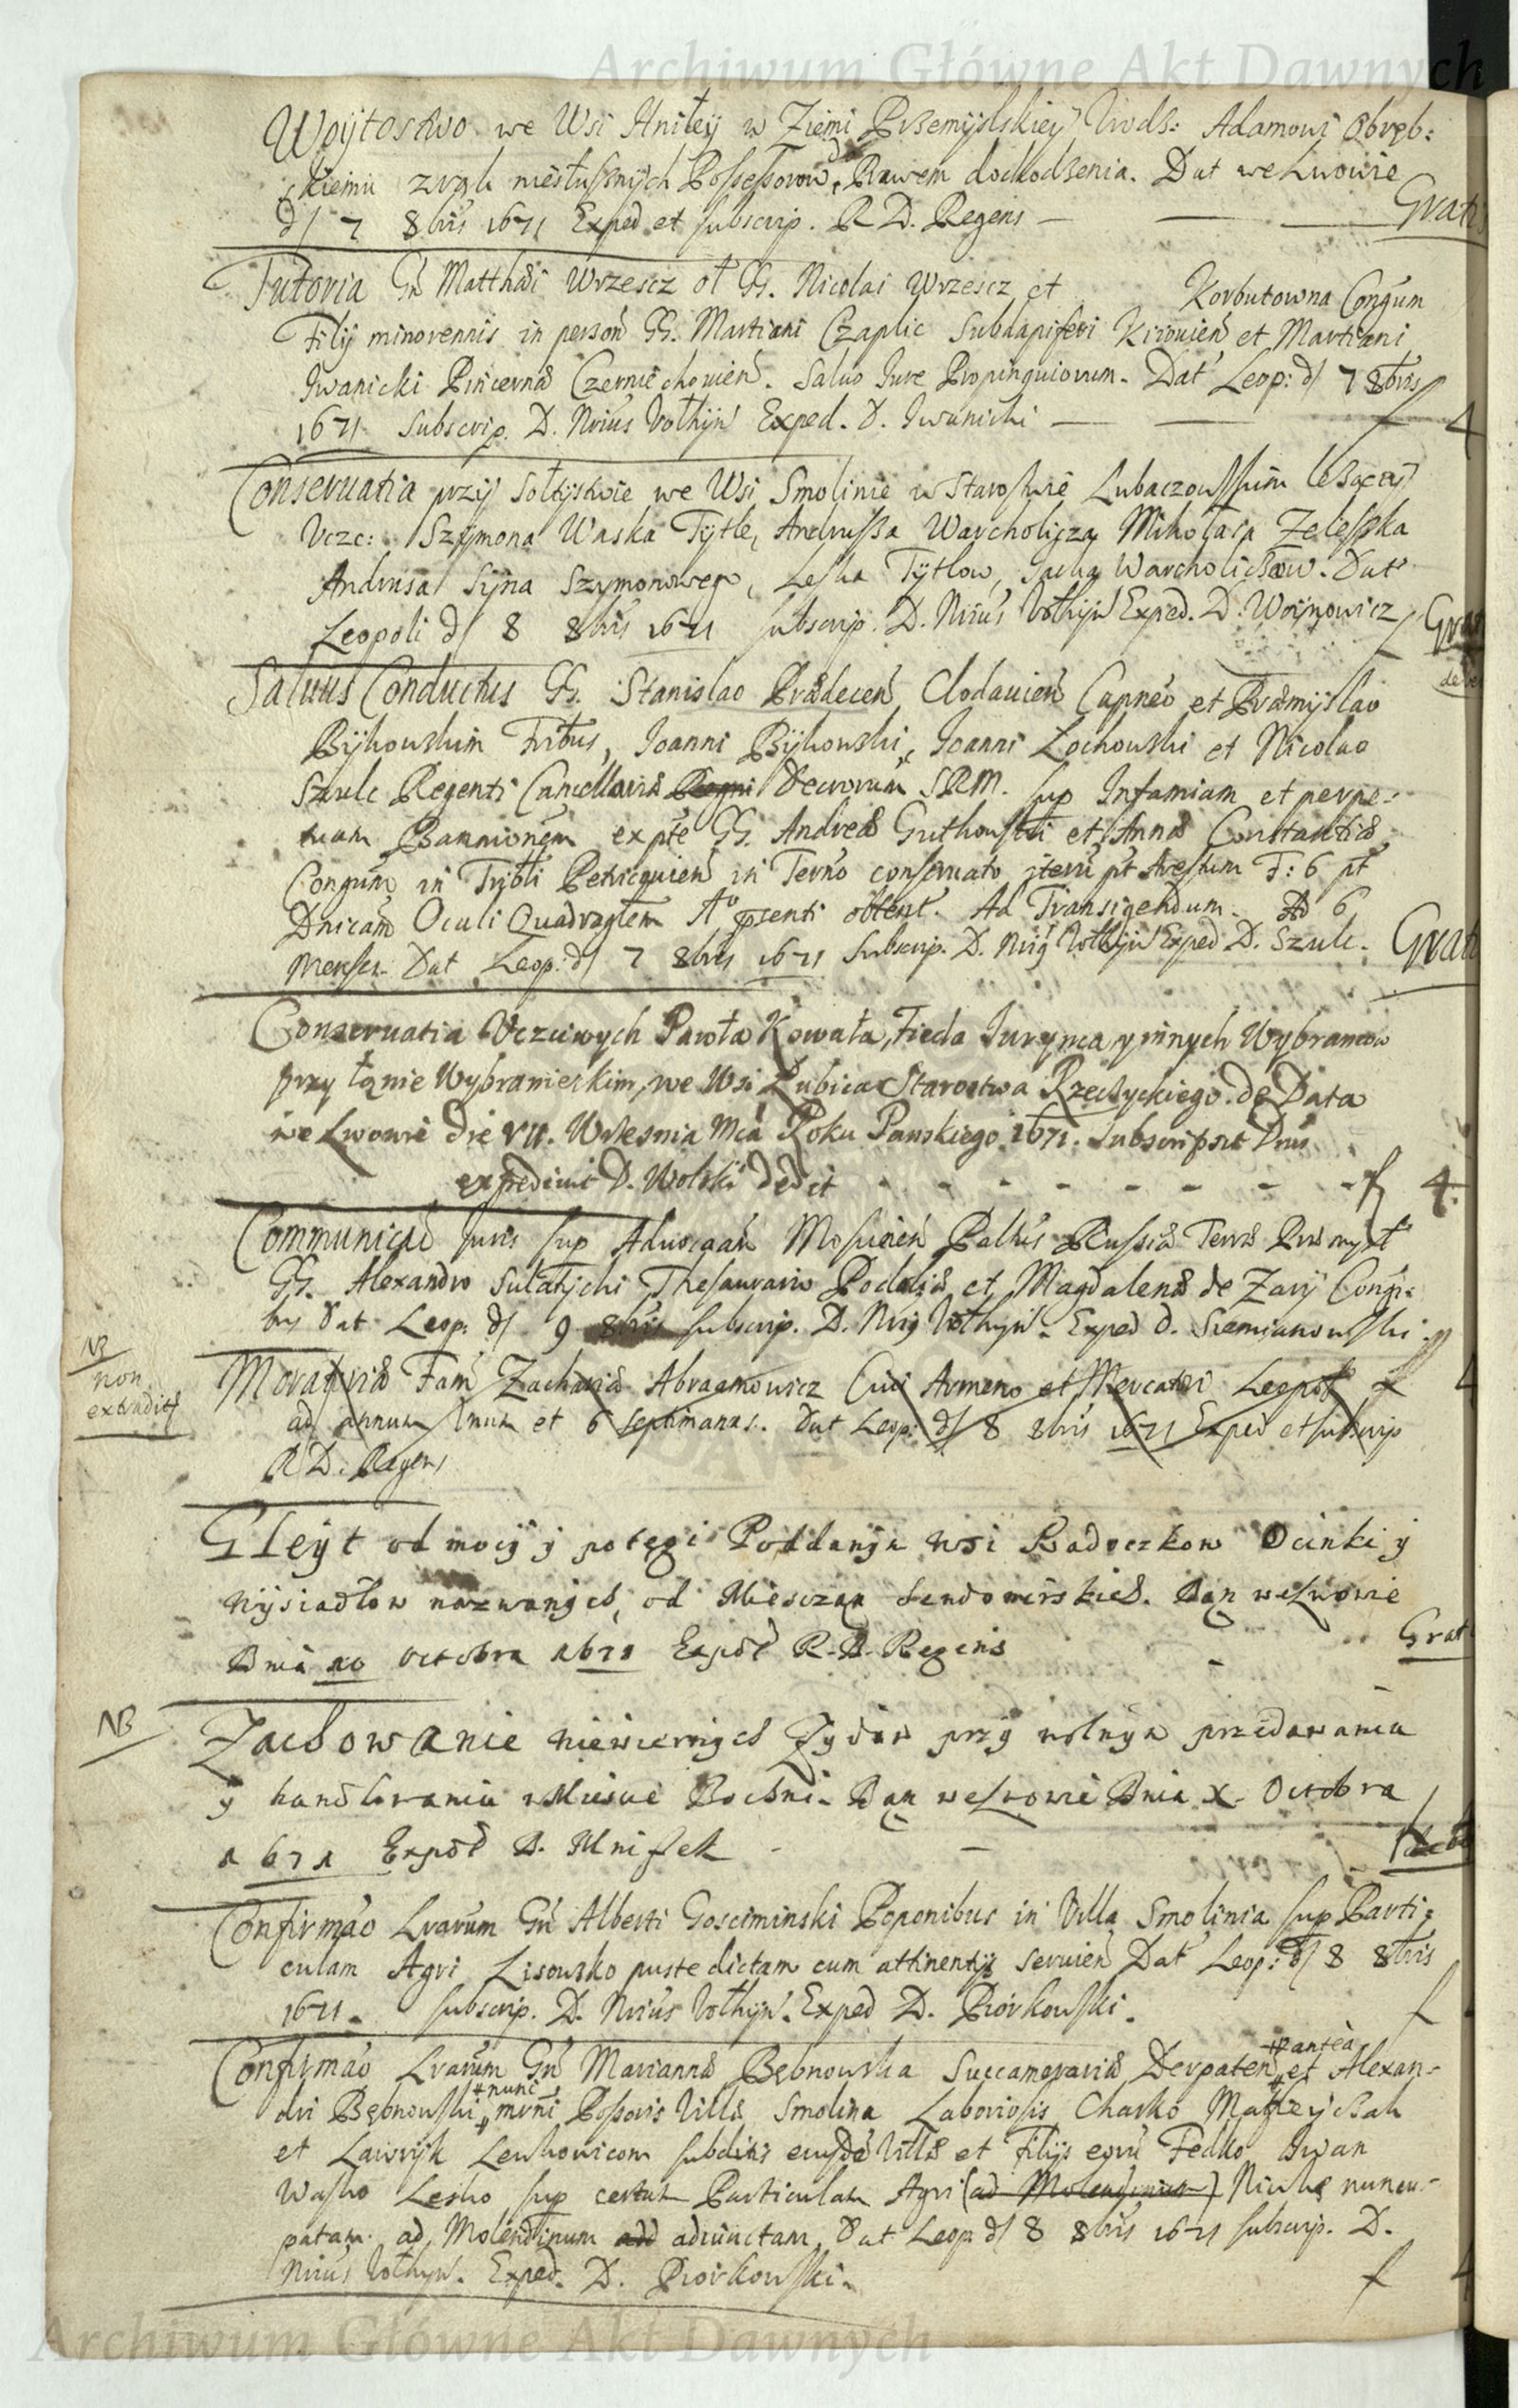 Archiwum Główne Akt Dawnych
Woytostwo we Wsi Hniłey w Ziemi Przemyslskiey Urodz: Adamowi Obręb:
skiemu niesłusznych Possessorow, Prawem dochodzenia. Dat we Lwowie
d/ 7 8bris 1671 Exped et subscrip. R D. Regens — — — Gratis
Tutoria Gń Matthæi Wrzescz ol GG. Nicolai Wrzescz et Korbutowna Congum
Filij minorennis in person GG. Martiani Czaplic Subdapiferi Kiiouien et Martiani
Iwanicki Pincernæ Czerniechouien. Saluo Iure Propinquiorum. Dat Leop: d/ 7 8bris
1671 Subscrip. D. Nrius Vołhyń Exped. D. Iwanicki — — f 4
Conseruatia przy Sołtystwie we Wsi Smolinie w Starostwie Lubaczowskim lezącey
Vczc: Szymona Waska Tytle, Andrussa Warcholicza Mikołaia Zeleszka
Andrusa Syna Szymonowego, Leska Tytlow, Warcholiczow. Dat
Leopoli d/ 8 8bris 1671 subscrip. D. Nrius Vołhyń Exped. D. Woynowicz
Saluus Conductus GG. Stanislao Prædecen Clodauien Capneo et Præmyslao
Bykowskim Frbus, Ioanni Bykowski, Ioanni Lochowski et Nicolao
Szulc Regenti Cancellariæ Regni Decretorum SRM. sup Infamiam et perpe-
tuam Bannionem ex pte GG. Andreæ Gutkowski et Annæ Constantiæ
Congum in Tribli Petricouien in Terno conseruato iteru pt Arestum F: 6 pt
Dnicam Oculi Quadraglem Ao psenti obtent. Ad Transigendum. Ad 6
Menses. Dat Leop: d/ 7 8bris 1671 Subscrip. D. Nrig Vołhyń Exped D. Szulc. Grat
Conseruatia Vczciwych Pawła Kowala, Fieda Iurynca, y innych Wybrancow
przy łanie Wybranieckim, we Wsi Lubica Starostwa Rzeczyckiego. de Data
we Lwowie Die VII. Wrzesnia Mca Roku Panskiego 1671. Subscripsit Dnus
expediuit D. Wolski dedit - - - - - - - f 4.
Communicao Iuris sup Aduocaan Moscicen Paltus Russiæ Terræ Præmysl
GG. Alexandro Sulatycki Thesaurario Podoliæ et Magdalenæ de Zary Coniu-
bus Dat Leop: d/ 9 8bris subscrip. D. Nrig Vołhyń. Exped D. Siemianowski
NB
non
extradit
Moratoriæ Fam Zachariæ Abraamowicz Ciui Armeno et Mercatori Leopol f 4
ad annum unum et 6 septimanas. Dat Leop: d/ 8 8bris 1671 Exped et subscrip
R D. Regens
Gleyt od mocy y potęgi Poddanym wsi Badoczkow Ocinki y
Wysiadłow nazwanych, od Miesczan Sendomirskich. Dan we Lwowie
Dnia 10 Octobra 1671 Exped R. D. Regens - Grat
NB
Zachowanie niewiernych Zydow przy wolnym przedawaniu
y handlowaniu w Miescie Bochni. Dan we Lwowie Dnia X. Octobra
1671 Exped D. Mniszek - —
Confirmao Lrarum Gn Alberti Gosciminski Poponibus in Villa Smolinia sup Parti-
culam Agri Lisowsko puste dictam cum attinentijs seruien Dat Leop: d/ 8 8bris
1671. subscrip. D. Nrius Vołhyń. Exped D. Piorkowski. f
Confirmao Lrarum Gn Mariannæ Bębnowska Succamerariæ Derpaten antea et Alexan-
dri Bębnowski nunc mrni Possoris Villæ Smolina Laboriosis Charko Matzeyczak
et Lawryk Lenkowicom subditis eiusde Villæ et Filijs eoru Fedko Iwan
Wasko Lesko sup certam Particulam Agri (ad Molendinum) Niwkę nuncu-
patam ad Molendinum add adiunctam Dat Leop. d/ 8 8bris 1671 subscrip. D.
Nrius Vołhyń. Exped. D. Piorkowski. f 4
Archiwum Główne Akt Dawnych